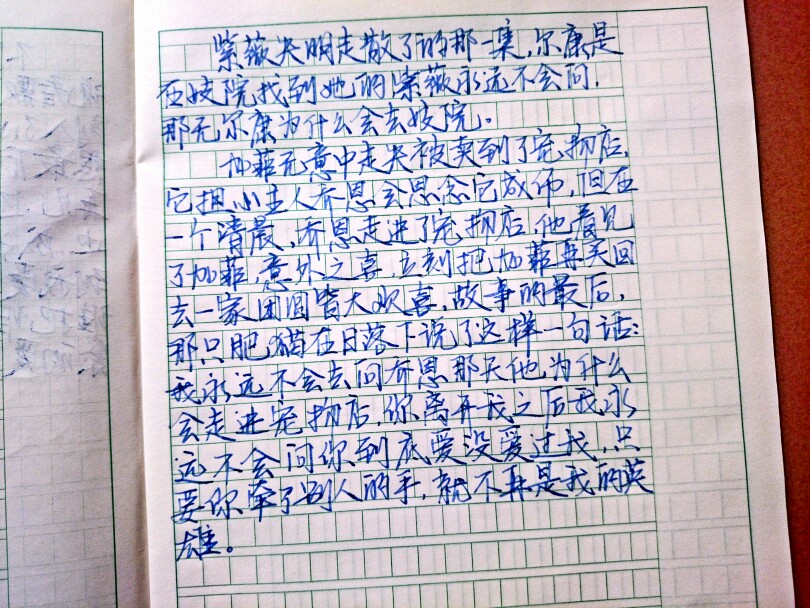 紫薇失明走散了的那一集，尔康是
在妓院找到她的紫薇永远不会问，
那天尔康为什么会去妓院。
加菲无意中走失被卖到了宠物店，
它担心主人乔恩会思念它成伤，但在
一个清晨，乔恩走进了宠物店，他看见
了加菲，意外之喜，立刻把加菲再买回
去一家团圆皆大欢喜，故事的最后，
那只肥猫在日落下说了这样一句话：
我永远不会去问乔恩那天他为什么
会走进宠物店，你离开我之后我永
远不会问你到底爱没爱过我，只
要你牵了别人的手，就不再是我的英
雄。